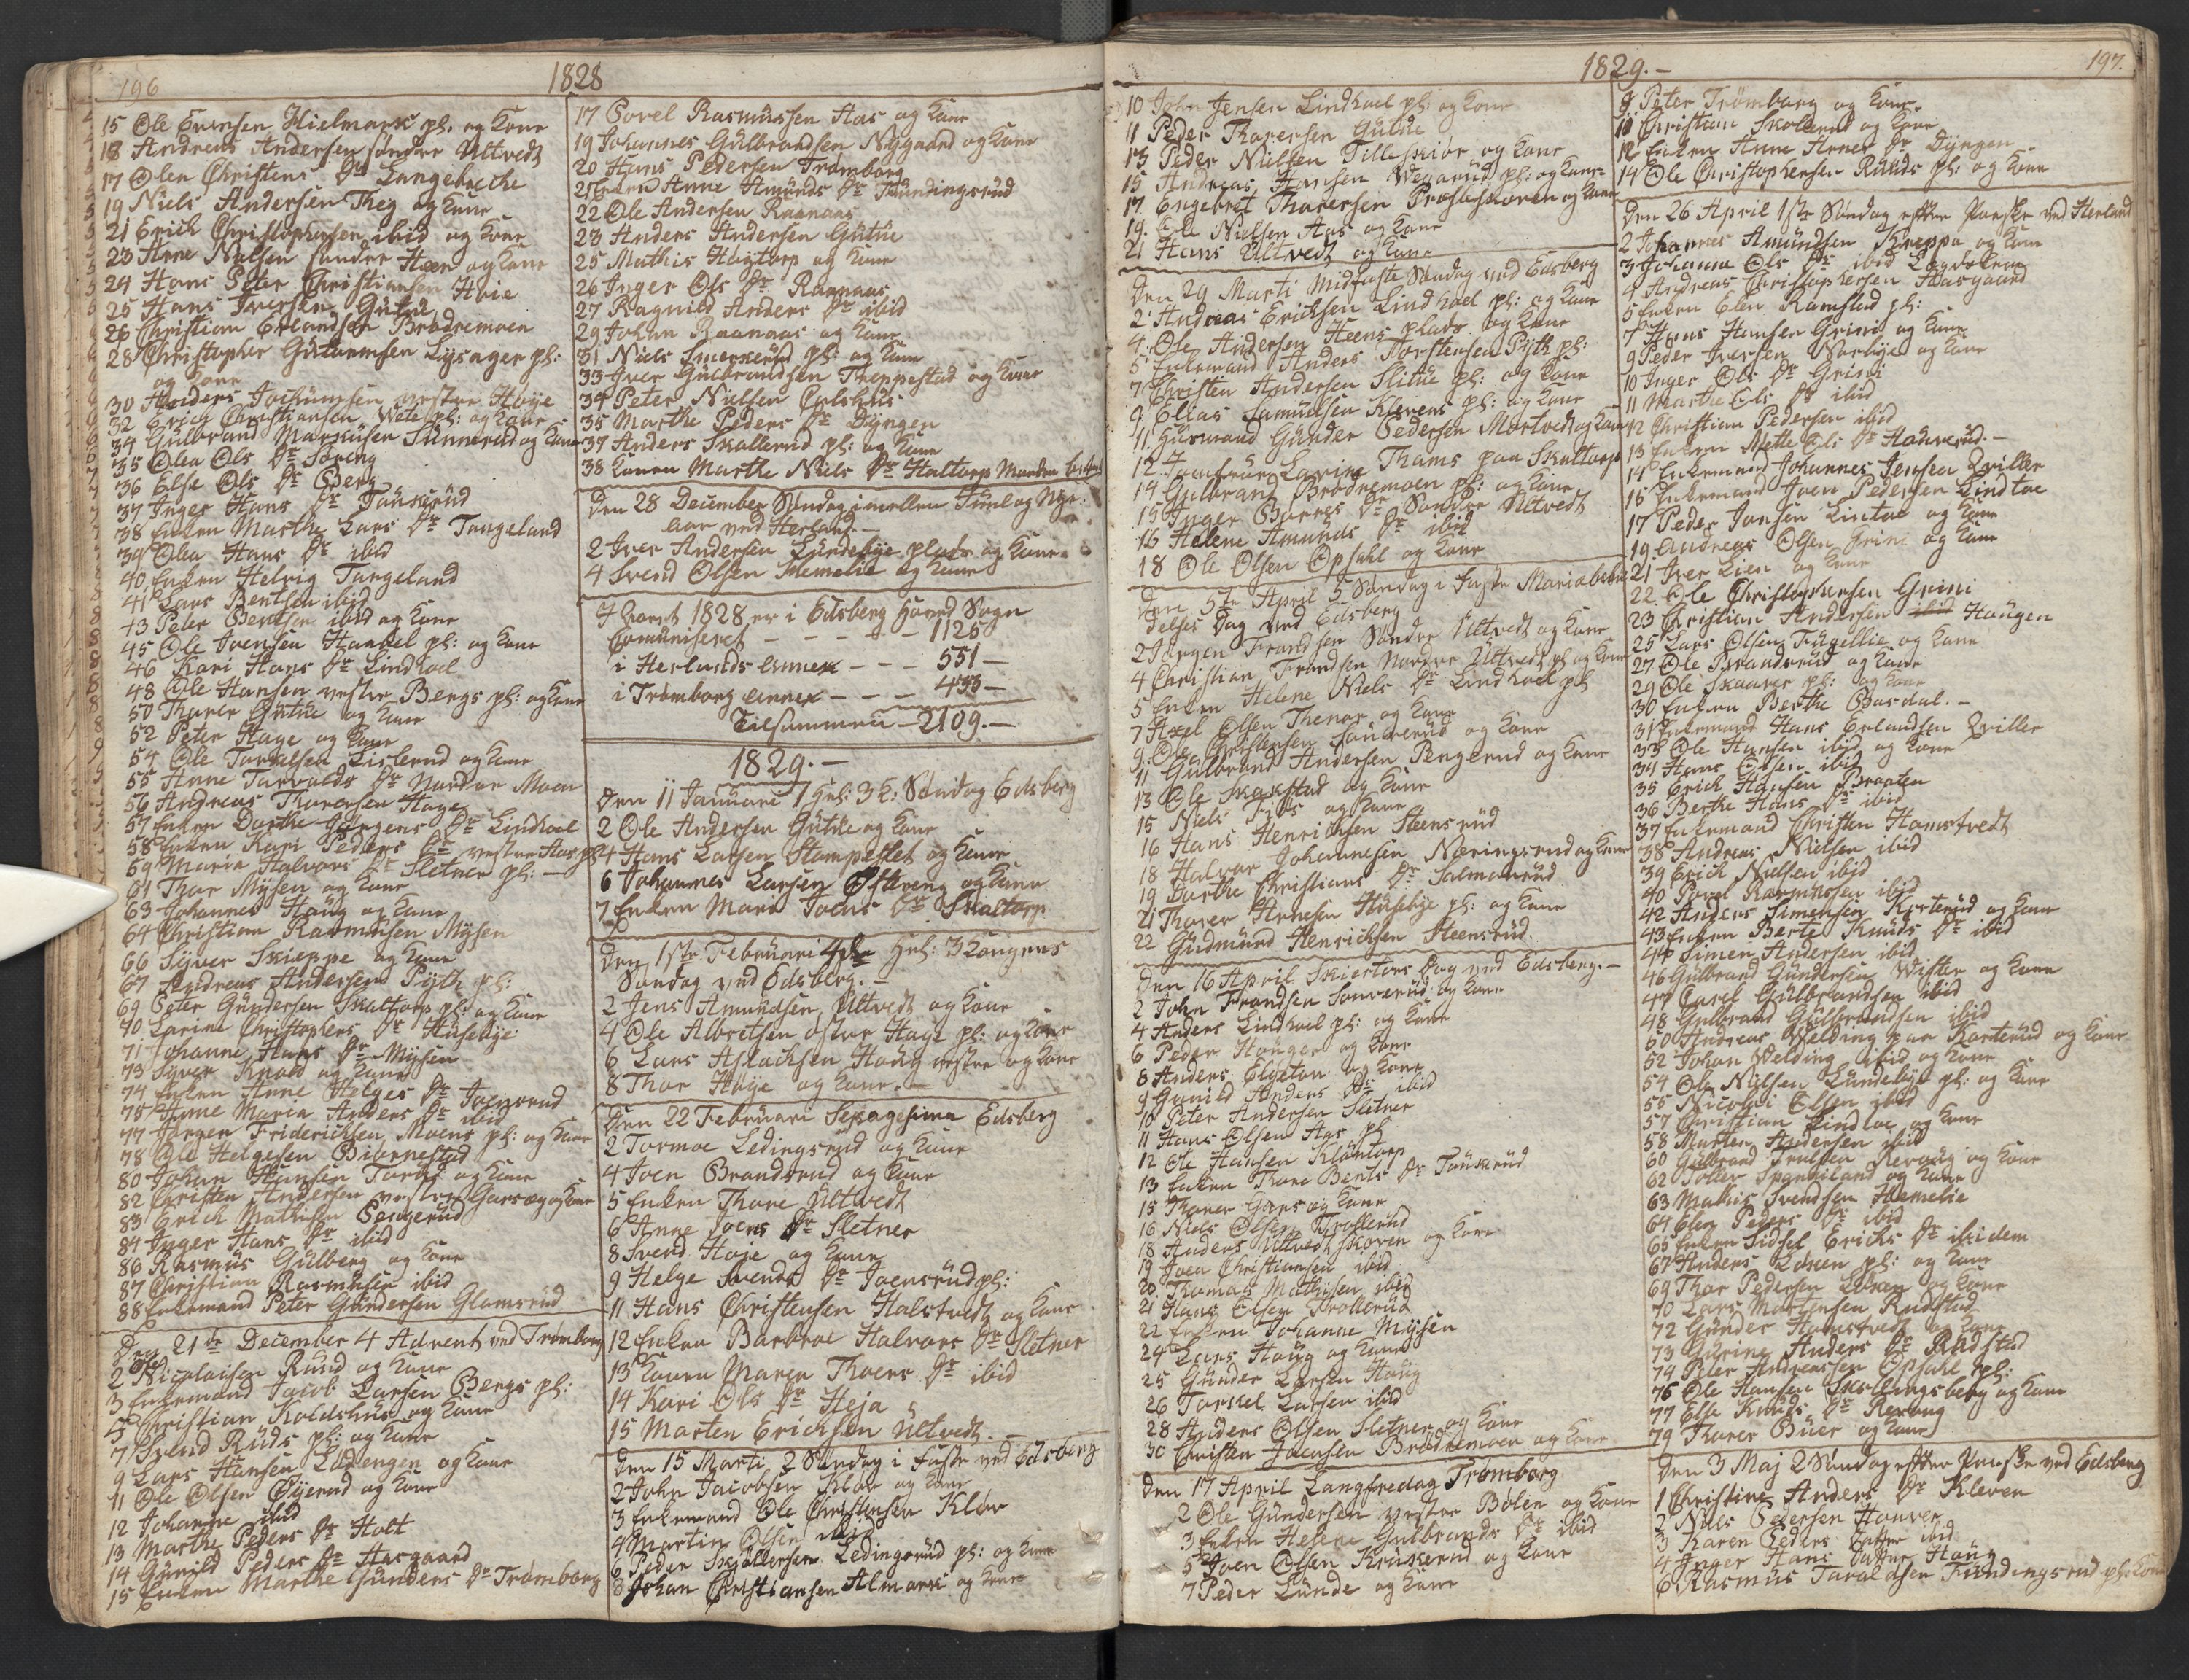 196
1828
15 Ole Evensen Hielmark pl. og Kone
18 Andreas Andersen søndre Ultvedt
17 Olea Christens Dr Langebrecke
19 Niels Andersen Theg og Kone
21 Erich Christophersen ibid og Kone
23 Arne Nielsen søndre Heen og Kone
24 Hans Peter Christiansen Høie
25 Hans Iversen Gutue
26 Christian Erlandsen Brødremoen
28 Christopher Guttormsen Lysager pl:
og Kone
30 Anders Jochumsen vestre Høye
32 Erich Christiansen Wete pl: og Kone
34 Gulbrand Markusen Sunnerud og Kone
35 Olea Ols Dr Søreng
36 Else Ols Dr Berg
37 Inger Hans Dr Touskrud
38 Enken Marthe Lars Dr Tangeland
39 Olea Hans Dr ibid
40 Enken Helvig Tangeland
41 Lars Bentsen ibid
43 Peter Bentsen ibid og Kone
45 Ole Joensen Haabel pl: og Kone
46 Kari Hans Dr Lindhoel
48 Ole Hansen vestre Bergs pl: og Kone
50 Tharer Gutue og Kone
52 Peter Hage og Kone
54 Ole Torvalsen Lislerud og Kone
55 Anne Torvalds Dr Nordre Moen
56 Andreas Thoresen Hage
57 Enken Dorthe Jørgens Dr Lindhoel
58 Enken Kari Peders Dr vestre Aas pl
59 Maria Halvors Dr Sletner pl: —
61 Thor Mysen og Kone
63 Johannes Haug og Kone
64 Christian Rasmusen Mysen
66 Syver Skieppe og Kone
67 Andreas Andersen Pyth pl:
69 Peter Gundersen Skaltorp pl: og Kone
70 Larine Christophers Dr Husebye
71 Johanne Hans Dr Mysen
73 Syver Knold og Kone
74 Enken Anne Helges Dr Joensrud
75 Anne Maria Anders Dr ibid
77 Jørgen Friderichsen Moens pl: og Kone
78 Ole Helgesen Biørnestad
80 Johan Hansen Torper og Kone
82 Christen Andersen vestre Garseg og Kone
83 Erich Mathisen Pengerud
84 Inger Hans Dr ibid
86 Rasmus Gulberg og Kone
87 Christian Rasmusen ibid
88 Enkemand Peter Gundersen Glomsrud
Den 21de December 4 Advent ved Trømborg
2 Nicolaisen Ruud og Kone
3 Enkemand Jacob Larsen Bergs pl:
5 Christian Koldshus og Kone
7 Svend Ruds pl: og Kone
9 Lars Hansen Ladengen og Kone
11 Ole Olsen Øyerud og Kone
12 Johanne ibid
13 Marthe Peders Dr Holt
14 Gunild Peders Dr Haagaard
15 Enken Marthe Gunders Dr Trømborg
17 Povel Rasmussen Aas og Kone
19 Johannes Gulbrandsen Nygaard og Kone
20 Hans Pedersen Trømborg
21 Enken Anne Amunds Dr Fundingsrud
22 Ole Andersen Raanaas
23 Anders Andersen Gutue
25 Mathis Høgtorp og Kone
26 Inger Ols Dr Raanaas
27 Ragnild Anders Dr ibid
29 Johan Raanaas og Kone
31 Niels Smerkerud pl: og Kone
33 Iver Gulbrandsen Theppestad og Kone
34 Peter Nielsen Colshus
35 Marthe Peders Dr Dyngen
37 Anders Skallerud pl: og Kone
38 Konen Marthe Niels Dr Haltorp
Den 28 December Søndag imellem Juul og Nye-
aar ved Herland. —
2 Iver Andersen Lundebye plads og Kone
4 Svend Olsen Hemelie og Kone
I Aaret 1828 er i Edsberg Hoved Sogn
Communiseret — — — 1125
i Herlands annex — — — 551 —
i Trømborg annex — — — 433 —
Tilsammen — 2109. —
1829. —
Den 11 Januari 1 Hel: 3 K: Søndag Edsberg
2 Ole Andersen Gutue og Kone
4 Hans Larsen Stompeslet og Kone
6 Johannes Larsen Østereng og Kone
7 Enken Mari Joens Dr Skaltorp
Den 1ste Februari 4de Hel: 3 Kongers
Søndag ved Edsberg. —
2 Jens Amundsen Ultvedt og Kone
4 Ole Albretsen østre Hage pl: og Kone
6 Lars Aslachsen Haug vestre og Kone
8 Thor Høye og Kone. —
Den 22 Februari Sexagesima Edsberg
2 Tormoe Ledingsrud og Kone
4 Joen Brandsrud og Kone
5 Enken Thore Ultvedt
6 Anne Joens Dr Sletner
8 Svend Høje og Kone
9 Helge Svends Dr Joensrud pl:
11 Hans Christensen Halstvedt og Kone
12 Enken Barbroe Halvors Dr Sletner
13 Konen Maren Thoers Dr ibid
14 Kari Ols Dr Heja
15 Marten Erichsen Ultvedt. —
Den 15 Marti 2 Søndag i Faste ved Edsberg
2 John Jacobsen Kløv og Kone
3 Enkemand Ole Christensen Kløv
4 Martin Olsen ibid
6 Peder Skjøllersen Ledingsrud pl: og Kone
8 Johan Christiansen Almark og Kone
1829. —
197.
10 John Jensen Lindhoel pl: og Kone
11 Peder Tharersen Gutue
13 Peder Nielsen Tilleskiør og Kone
15 Andreas Hansen Wegarud pl: og Kone
17 Engebret Tharersen Prosteskoven og Kone
19 Ole Nielsen Aas og Kone
21 Hans Ultvedt og Kone
Den 29 Marti Midfaste Søndag ved Edsberg
2 Andreas Erichsen Lindhoel pl: og Kone
4 Ole Andersen Heens plads og Kone
5 Enkemand Anders Torstensen Pyth pl:
7 Christen Andersen Slitue pl: og Kone
9 Elias Samuelsen Klevens pl: og Kone
11 Huusmand Gunder Pedersen Mortvedt og Kone
12 Jomfrue Lavine Thams paa Skaltorp
14 Gulbrand Brødremoen pl: og Kone
15 Inger Børres Dr Søndre Ultvedt
16 Helene Amunds Dr ibid
18 Ole Olsen Opsahl og Kone
Den 5te April 5 Søndag i Faste Mariæ bebu
delses Dag ved Edsberg
2 Jørgen Frandsen Søndre Ultvedt og Kone
4 Christian Frandsen Nordre Ultvedt pl og Kone
5 Enken Helene Niels Dr Lindhoel pl
7 Axel Olsen Thenor og Kone
9 Ole Christensen Sanrerud og Kone
11 Gulbrand Andersen Pengerud og Kone
13 Ole Skakstad og Kone
15 Niels Fiøs og Kone
16 Hans Henrichsen Steensrud
18 Halvor Johannesen Næringsrud og Kone
19 Dorthe Christians Dr Salmonrud
21 Tharer Arnesen Husebye pl: og Kone
22 Gudmund Henrichsen Steensrud.
Den 16 April Skiertors Dag ved Edsberg. —
2 John Frandsen Sonrerud og Kone
4 Anders Lindhoel pl: og Kone
6 Peder Haugen og Kone
8 Anders Elgeton og Kone
9 Gunild Anders Dr ibid
10 Peter Andersen Sletner
11 Hans Olsen Aas pl
12 Ole Hansen Klontorp
13 Enken Thore Bents Dr Touskrud
15 Tharer Gars og Kone
16 Niels Olsen Trollerud
18 Anders Ultvedt Skoven og Kone
19 Joen Christiansen ibid
20 Thomas Mathisen ibid
21 Hans Olsen Trollerud
22 Enken Johanne Mysen
24 Lars Haug og Kone
25 Gunder Larsen Haug
26 Torkel Larsen ibid
28 Anders Olsen Sletner og Kone
30 Christen Joensen Brødremoen og Kone
Den 17 April Langfredag Trømborg
2 Ole Gundersen vestre Bølin og Kone
3 Enken Helene Gulbrands Dr ibid
5 Joen Olsen Kruserud og Kone
7 Peder Lunde og Kone
9 Peter Trømborg og Kone
11 Christian Skollerud og Kone
12 Enken Anne Arnes Dr Dyngen
14 Ole Christophersen Ruuds pl: og Kone
Den 26 April 1ste Søndag efter Paaske ved Herland
2 Johannes Amundsen Kreppa og Kone
3 Johanna Ols Dr ibid
4 Andreas Christophersen Haagaard
5 Enken Elen Ramstad pl:
7 Hans Hansen Grini og Kone
9 Peder Iversen Norbye og Kone
10 Inger Ols Dr Grini
11 Marthe Ols Dr ibid
12 Christian Pedersen ibid
13 Enken Mette Ols Dr Haurerud. —
14 Enkemand Johannes Jensen Zviller
15 Enkemand Joen Pedersen Lindtoe
17 Peder Jonsen Lintoe og Kone
19 Andreas Olsen Grini og Kone
21 Iver Lien og Kone
22 Ole Christophersen Grini
23 Christian Andersen ibid Haugen
25 Lars Olsen Fugellie og Kone
27 Ole Brandsrud og Kone
29 Ole Skaarer pl: og Kone
30 Enken Berthe Basdal. —
31 Enkemand Hans Erlandsen Zviller
33 Ole Hansen ibid og Kone
34 Hans Olsen ibid
35 Erich Hansen Braaten
36 Berthe Hans Dr ibid
37 Enkemand Christen Homstvedt
38 Andreas Nielsen ibid
39 Erich Nielsen ibid
40 Povel Rasmussen ibid
42 Anders Simensen Korterud og Kone
43 Enken Berte Knuds Dr ibid
44 Simen Andersen ibid
46 Gulbrand Gundersen Wister og Kone
47 Carel Gulbrandsen ibid
48 Gulbrand Gulbrandsen ibid
50 Andreas Welding paa Korterud og Kone
52 Johan Welding ibid og Kone
54 Ole Nielsen Lundebye pl: og Kone
55 Nicolai Olsen ibid
57 Christian Lindtoe og Kone
58 Marten Andersen ibid
60 Gulbrand Trulsen Revoug og Kone
62 Toller Spangeland og Kone
63 Mathis Svendsen Hemelie
64 Elen Peders Dr ibid
65 Enken Sidsel Erichs Dr ibidem
67 Anders Løken pl: og Kone
69 Thor Pedersen Løken og Kone
70 Lars Mortensen Rudstad
72 Gunder Homstvedt og Kone
73 Gurine Anders Dr Rudstad
74 Peter Andreassen Opsahl pl:
76 Ole Hansen Skollingsberg og Kone
77 Else Knuds Dr Revoug
79 Tharer Buer og Kone
Den 3 Maj 2 Søndag efter Paaske ved Edsberg
1 Christine Anders Dr Kleven
2 Niels Pedersen Houver
3 Karen Peders Datter ibid
4 Inger Hans Datter Haug
6 Rasmus Taraldsen Fundingsrud pl: Kone